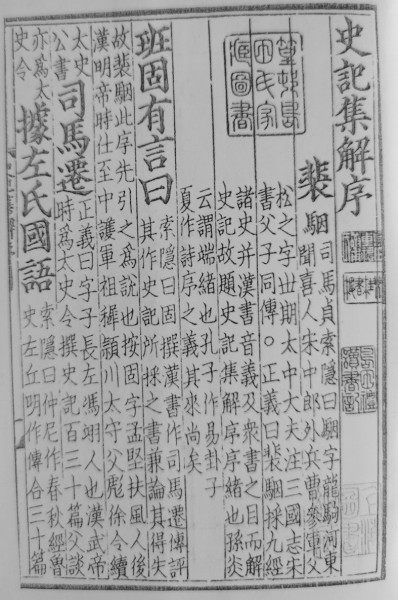 史記集解序
裴駰
司馬貞索隱曰駰字龍駒河東
聞喜人宋中郎外兵曹參軍父
松之字世期太中大夫注三國志宋
書父子同傳○正義曰裴駰採九經
諸史并漢書音義及衆書之目而解
史記故題史記集解序序緒也孫炎
云謂端緒也孔子作易卦子
夏作詩序之義其來尚矣
班固有言曰
索隱曰固撰漢書作司馬遷傳評
其作史記所採之書兼論其得失
故裴駰此序先引之爲說也按固字孟堅扶風人後
漢明帝時仕至中護軍祖穉潁川太守父彪徐令續
太史
公書
司馬遷
正義曰字子長左馮翊人也漢武帝
時爲太史令撰史記百三十篇父談
亦爲太
史令
據左氏國語
索隱曰仲尼作春秋經魯
史左丘明作傳合三十篇